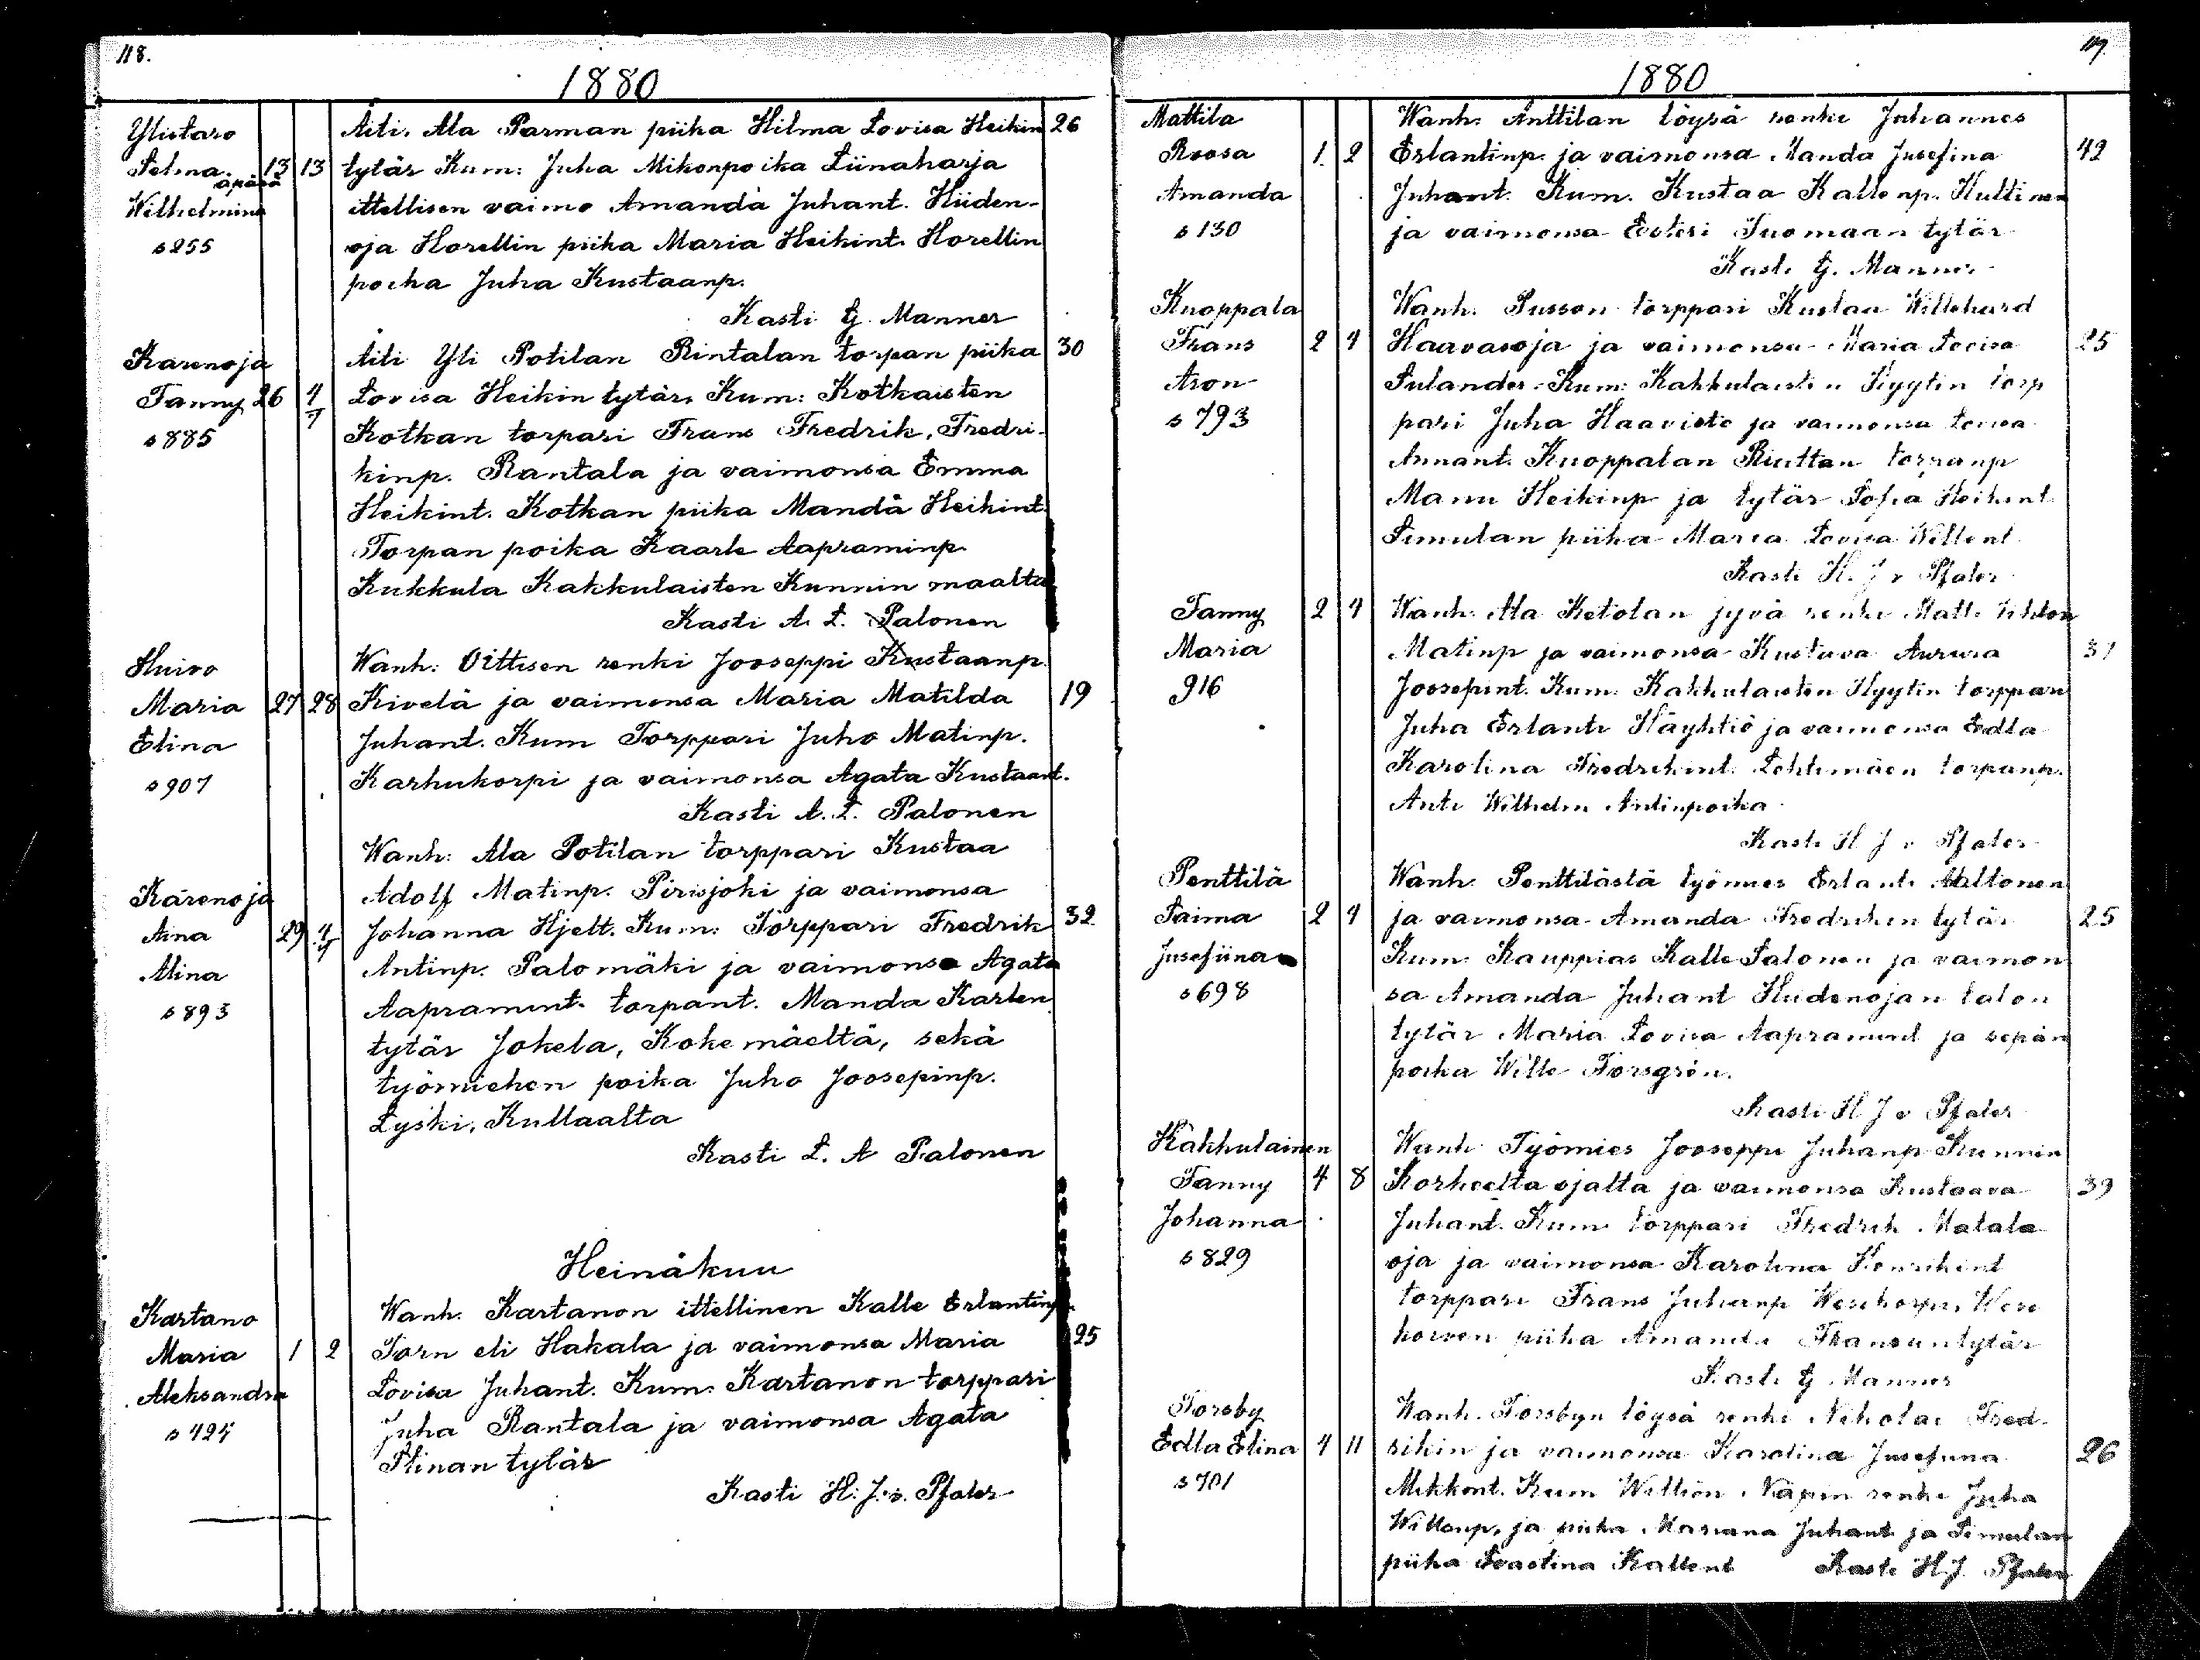 118.
1880
Ylistaro
Selma 13 13
äpärä
Wilhelmina
s 255
Äiti. Ala Parman piika Hilma Lovisa Heikin 26
tytär Kum: Juha Mikonpoika Liinaharja
ittellisen vaimo Amanda Juhant. Hiiden-
oja Horellin piika Maria Heikint. Horellin
poika Juha Kustaanp.
Kasti G. Manner
Karenoja
Fanny 26 4/7
s 885
Äiti Yli Potilan Rintalan torpan piika 30
Lovisa Heikin tytär, Kum: Kotkaisten
Kotkan torpari Frans Fredrik, Fredri-
kinp. Rantala ja vaimonsa Emma
Heikint. Kotkan piika Manda Heikint.
Torpan poika Kaarle Aapraminp.
Kukkula Kakkulaisten Kunnin maalta
Kasti A. L. Palonen
Huivo
Maria 27 28
Elina
s 907
Wanh: Oittisen renki Jooseppi Kustaanp.
Kivelä ja vaimonsa Maria Matilda 19
Juhant. Kum Torppari Juho Matinp.
Karhukorpi ja vaimonsa Agata Kustaant.
Kasti A. L. Palonen
Kärenoja
Aina 29 4/7
Alina
s 893
Wanh: Ala Potilan torppari Kustaa
Adolf Matinp. Pirisjoki ja vaimonsa
Johanna Hjelt. Kum: Torppari Fredrik 32
Antinp. Palomäki ja vaimonsa Agata
Aapramint. torpant. Manda Karlen
tytär Jokela, Kokemäeltä, sekä
työmiehen poika Juho Joosepinp.
Lyski, Kullaalta
Kasti L. A Palonen
Heinäkuu
Kartano
Maria 1 2
Aleksandra
s 424
Wanh. Kartanon ittellinen Kalle Erlantinp.
Torn eli Hakala ja vaimonsa Maria 25
Lovisa Juhant. Kum. Kartanon torppari
Juha Rantala ja vaimonsa Agata
Stinan tytär
Kasti H. J. v. Pfaler
119.
1880
Mattila
Roosa 1. 2
Amanda
s 130
Wanh: Anttilan löysä renki Juhannes
Erlantinp. ja vaimonsa Manda Jusefina 42
Juhant. Kum. Kustaa Kallenp. Kultinen
ja vaimonsa Tuomaan tytär
Kasti G. Manner
Knoppala
Frans 2 4
Aron
s 793
Wanh. Susson torppari Kustaa Willehard
Haavasoja ja vaimonsa Maria Lovisa 25
Sulander. Kum: Kakkulaisten Hyytin torp
pari Juha Haavisto ja vaimonsa Lovisa
Annant. Knoppalan Riuttan torpanp
Manu Heikinp ja tytär Sofia Heikint
Simulan piika Maria Lovisa Willent
Kasti H. J v Pfaler
Fanny 2 4
Maria
916
Wanh. Ala Ketolan jyvä renki Matti
Matinp ja vaimonsa Kustava Aurura 31
Joosepint. Kum. Kakkulaisten Hyytin torppari
Juha Erlanti Häyhtiö ja vaimonsa Edla
Karolina Fredrikint. Lehtimäen torpanp.
Anti Wilhelm Antinpoika
Kasti H J v Pfaler
Penttilä
Saima 2 4
Jusefiina
s 698
Wanh. Penttilästä työmies Erlanti Aaltonen
ja vaimonsa Amanda Fredrikin tytär 25
Kum. Kauppias Kalle Salonen ja vaimon
sa Amanda Juhant Hiidenojan talon
tytär Maria Lovisa Aapramint ja sepän
poika Wille Forsgrén.
Kasti H J v Pfaler
Kakkulainen
Fanny 4 8
Johanna
s 829
Wanh Työmies Jooseppi Juhanp Kunnin
Korheelta ojalta ja vaimonsa Kustaava 39
Juhant. Kum torppari Fredrik Matala
oja ja vaimonsa Karolina Henrikint
torppari Frans Juhanp Wesikorpi, Wesi
korven piika Amanda Fransuntytär
Kasti G Manner
Torsby
Edla Elina 4 11
s 701
Wanh. Torsbyn löysä renki Nikolai Fred-
rikin ja vaimonsa Karolina Jusefiina 26
Mikkont. Kum Weltion Näpin renki Juha
Willenp, ja piika Mariana Juhant ja Simulan
piika Evastina Kallent Kasti H. J. Pfaler